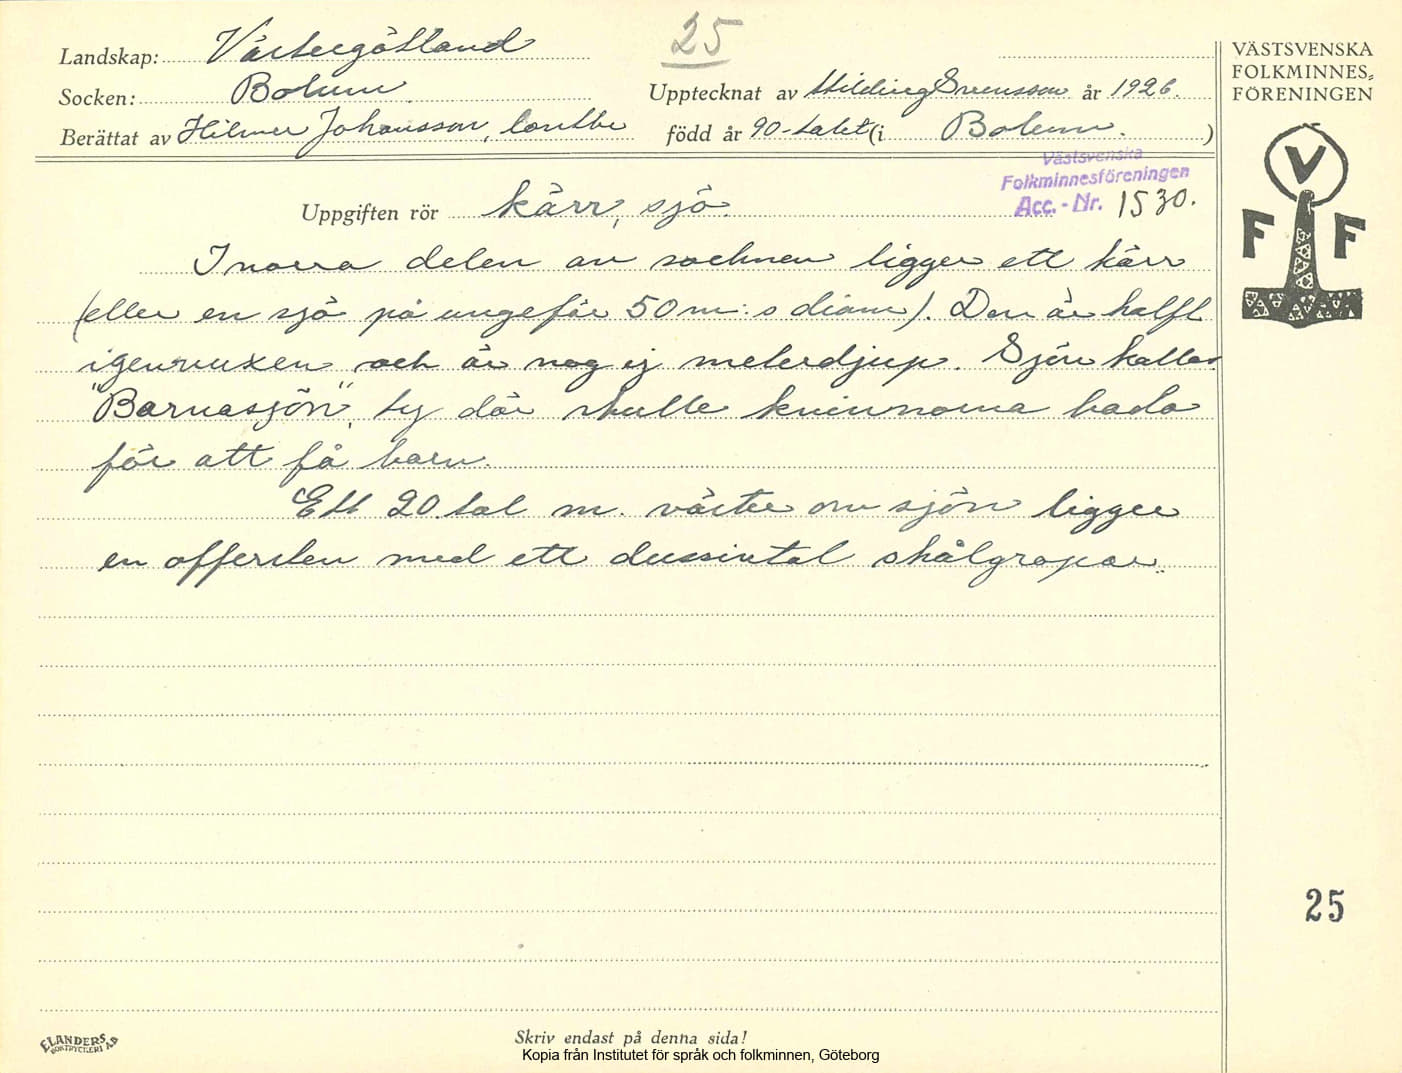 25
Landskap: Västergötland
Socken: Bolum
Upptecknat av Hilding Svensson år 1926.
Berättat av Hilmer Johansson, lantbr
född år 90-talet (i Bolum. )
Västsvenska
Folkminnesföreningen
Acc.-Nr. 1530.
Uppgiften rör kärr, sjö.
I norra delen av socknen ligger ett kärr
(eller en sjö på ungefär 50 m:s diam). Den är halft
igenvuxen och är nog ej meterdjup. Sjön kallas
"Barnasjön", ty där skulle kvinnorna bada
för att få barn.
Ett 20.tal m. väster om sjön ligger
en offersten med ett dussintal skålgropar.
VÄSTSVENSKA
FOLKMINNES=
FÖRENINGEN
V
F F
25
ELANDERS
BOKTRYCKERI AB
Skriv endast på denna sida!
Kopia från Institutet för språk och folkminnen, Göteborg